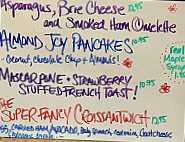 Asparagus, Brie Cheese 12.95
and Smoked Ham Omelette
ALMOND JOY PANCAKES 10.95
- Coconut, chocolate Chips & Almonds!
real
Maple
Syrup
MASCARPONE + STRAWBERRY
STUFFED FRENCH TOAST! 10.95
THE
SUPER FANCY CROISSANTWICH 12.95
HAM, AVOCADO, Baby Spinach, Goat cheese